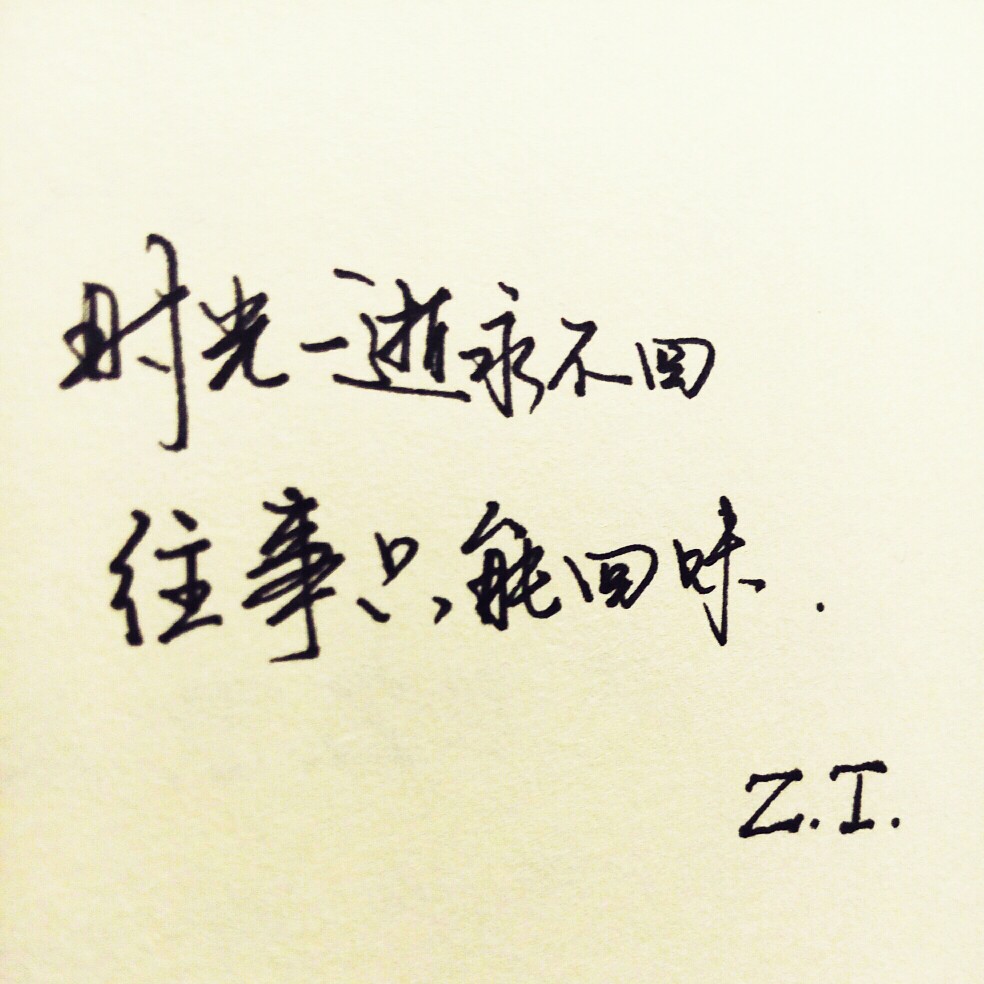 时光一逝永不回
往事只能回味.
Z.T.